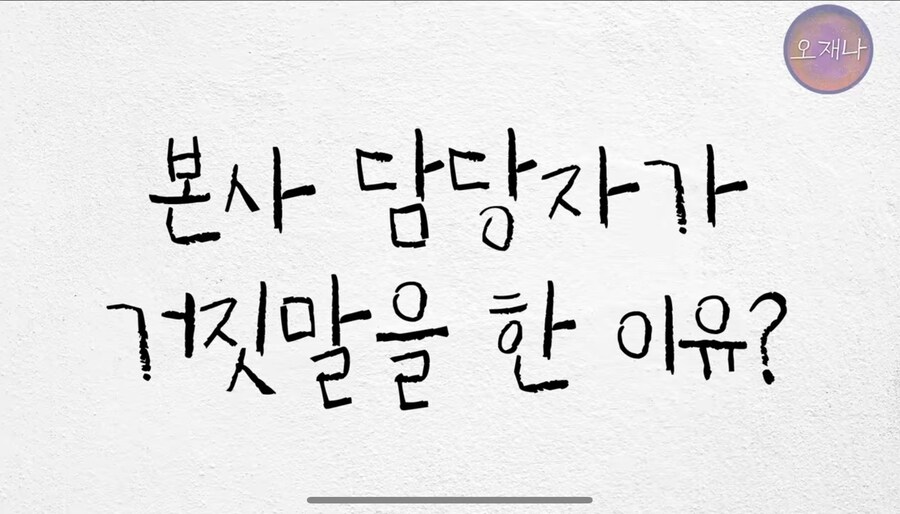 오재나
본사 담당자가
거짓말을 한 이유?